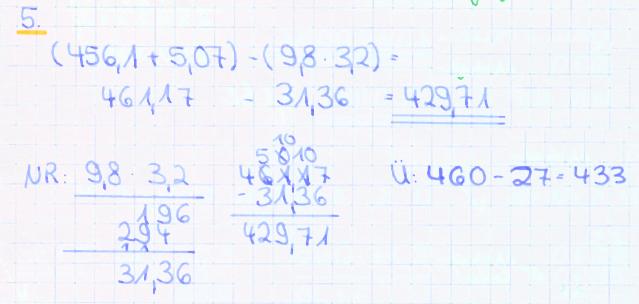 5.
(456,1 + 5,07) - (9,8 · 3,2) =
461,17 - 31,36 = 429,71
NR: 9,8 · 3,2
196
294
11
31,36
10
5 0 10
461,17
- 31,36
429,71
Ü: 460 - 27 = 433